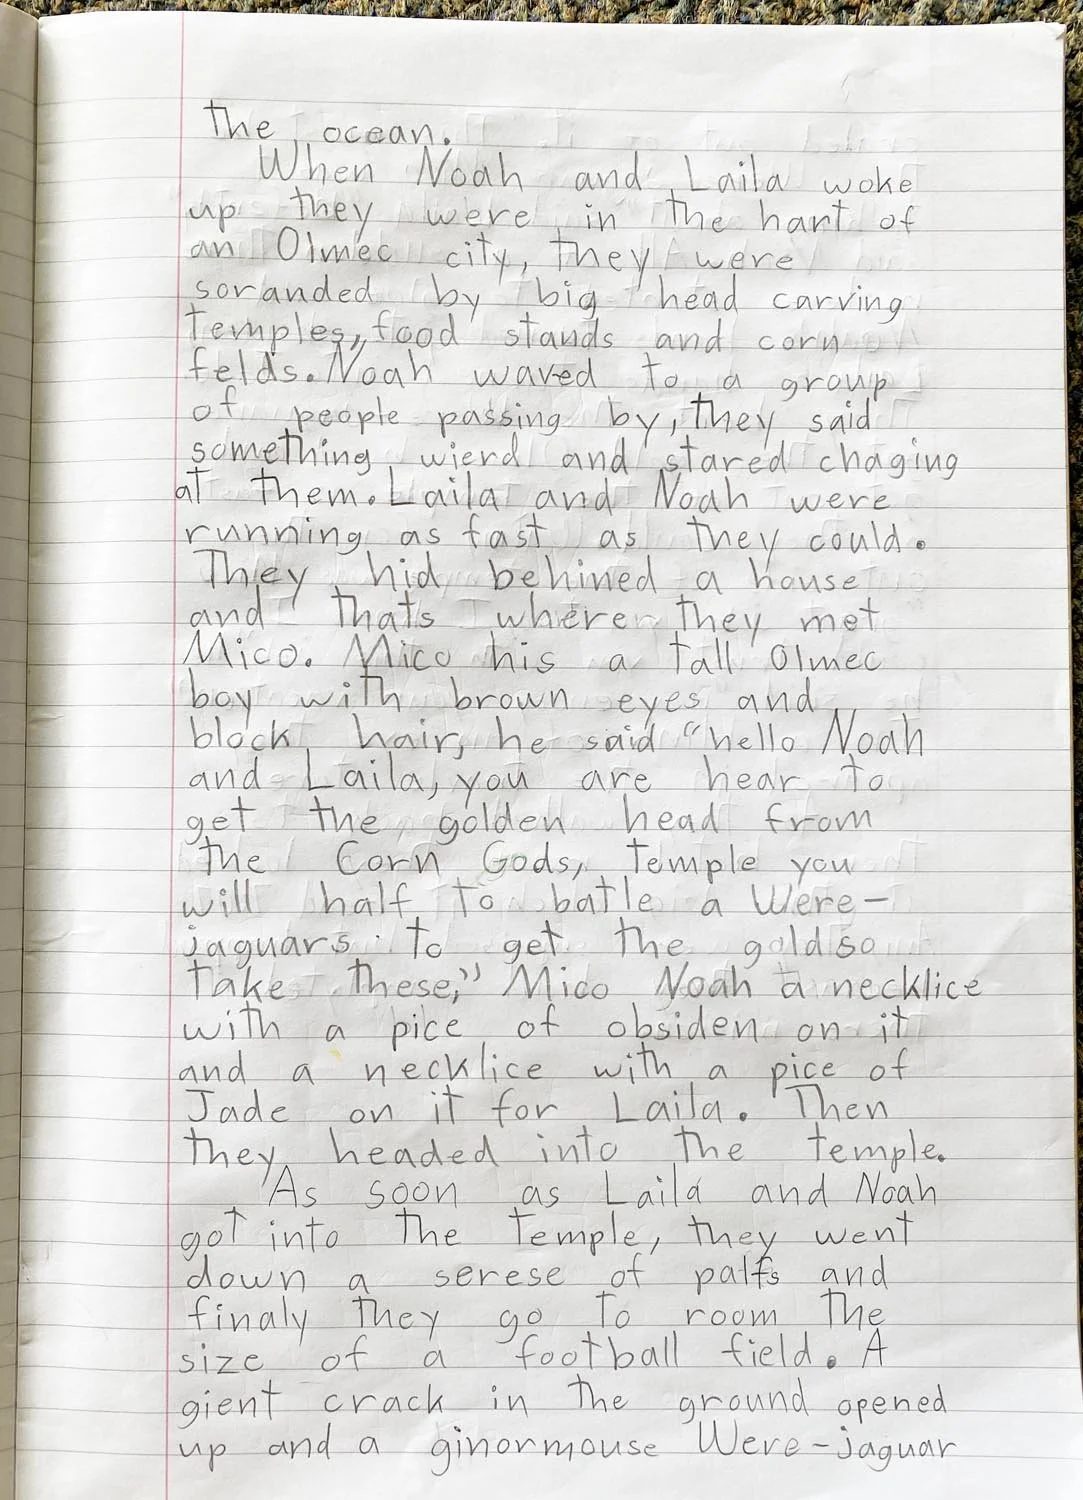 The ocean.
When Noah and Laila woke
up they were in the hart of
an Olmec city, they were
soranded by big head carving
temples, food stands and corn
felds. Noah waved to a group
of people passing by, they said
something wierd and stared chaging
at them. Laila and Noah were
running as fast as they could.
They hid behined a house
and thats where they met
Mico. Mico his a tall Olmec
boy with brown eyes and
block hair, he said "hello Noah
and Laila, you are hear to
get the golden head from
the Corn Gods, temple you
will half to batle a Were-
jaguars to get the gold so
take these," Mico Noah a necklice
with a pice of obsiden on it
and a necklice with a pice of
Jade on it for Laila. Then
they headed into the temple.
As soon as Laila and Noah
got into the temple, they went
down a serese of palfs and
finaly they go to room the
size of a football field. A
gient crack in the ground opened
up and a ginormouse Were-jaguar